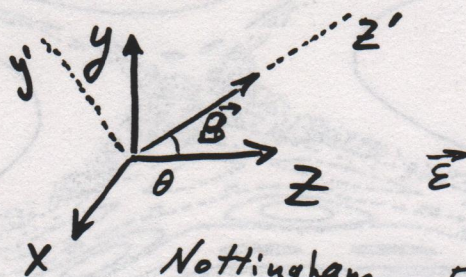 y' y z'
B⃗
θ z ε⃗
x Nottingham